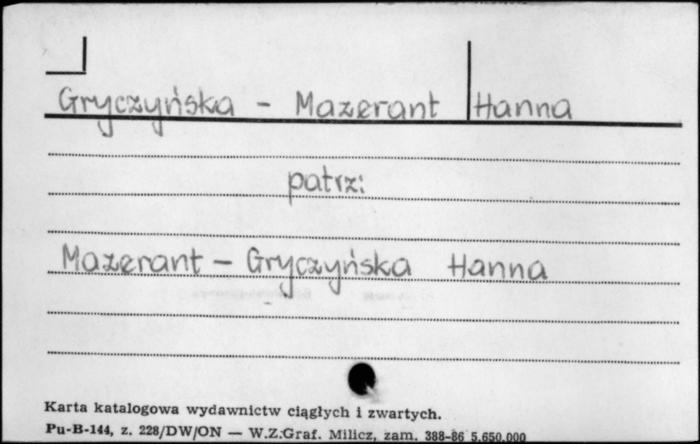 Gryczyńska - Mazerant Hanna
patrz:
Mazerant - Gryczyńska Hanna
Karta katalogowa wydawnictw ciągłych i zwartych.
Pu-B-144, z. 228/DW/ON — W.Z.Graf. Milicz, zam. 388-86 5.650.000